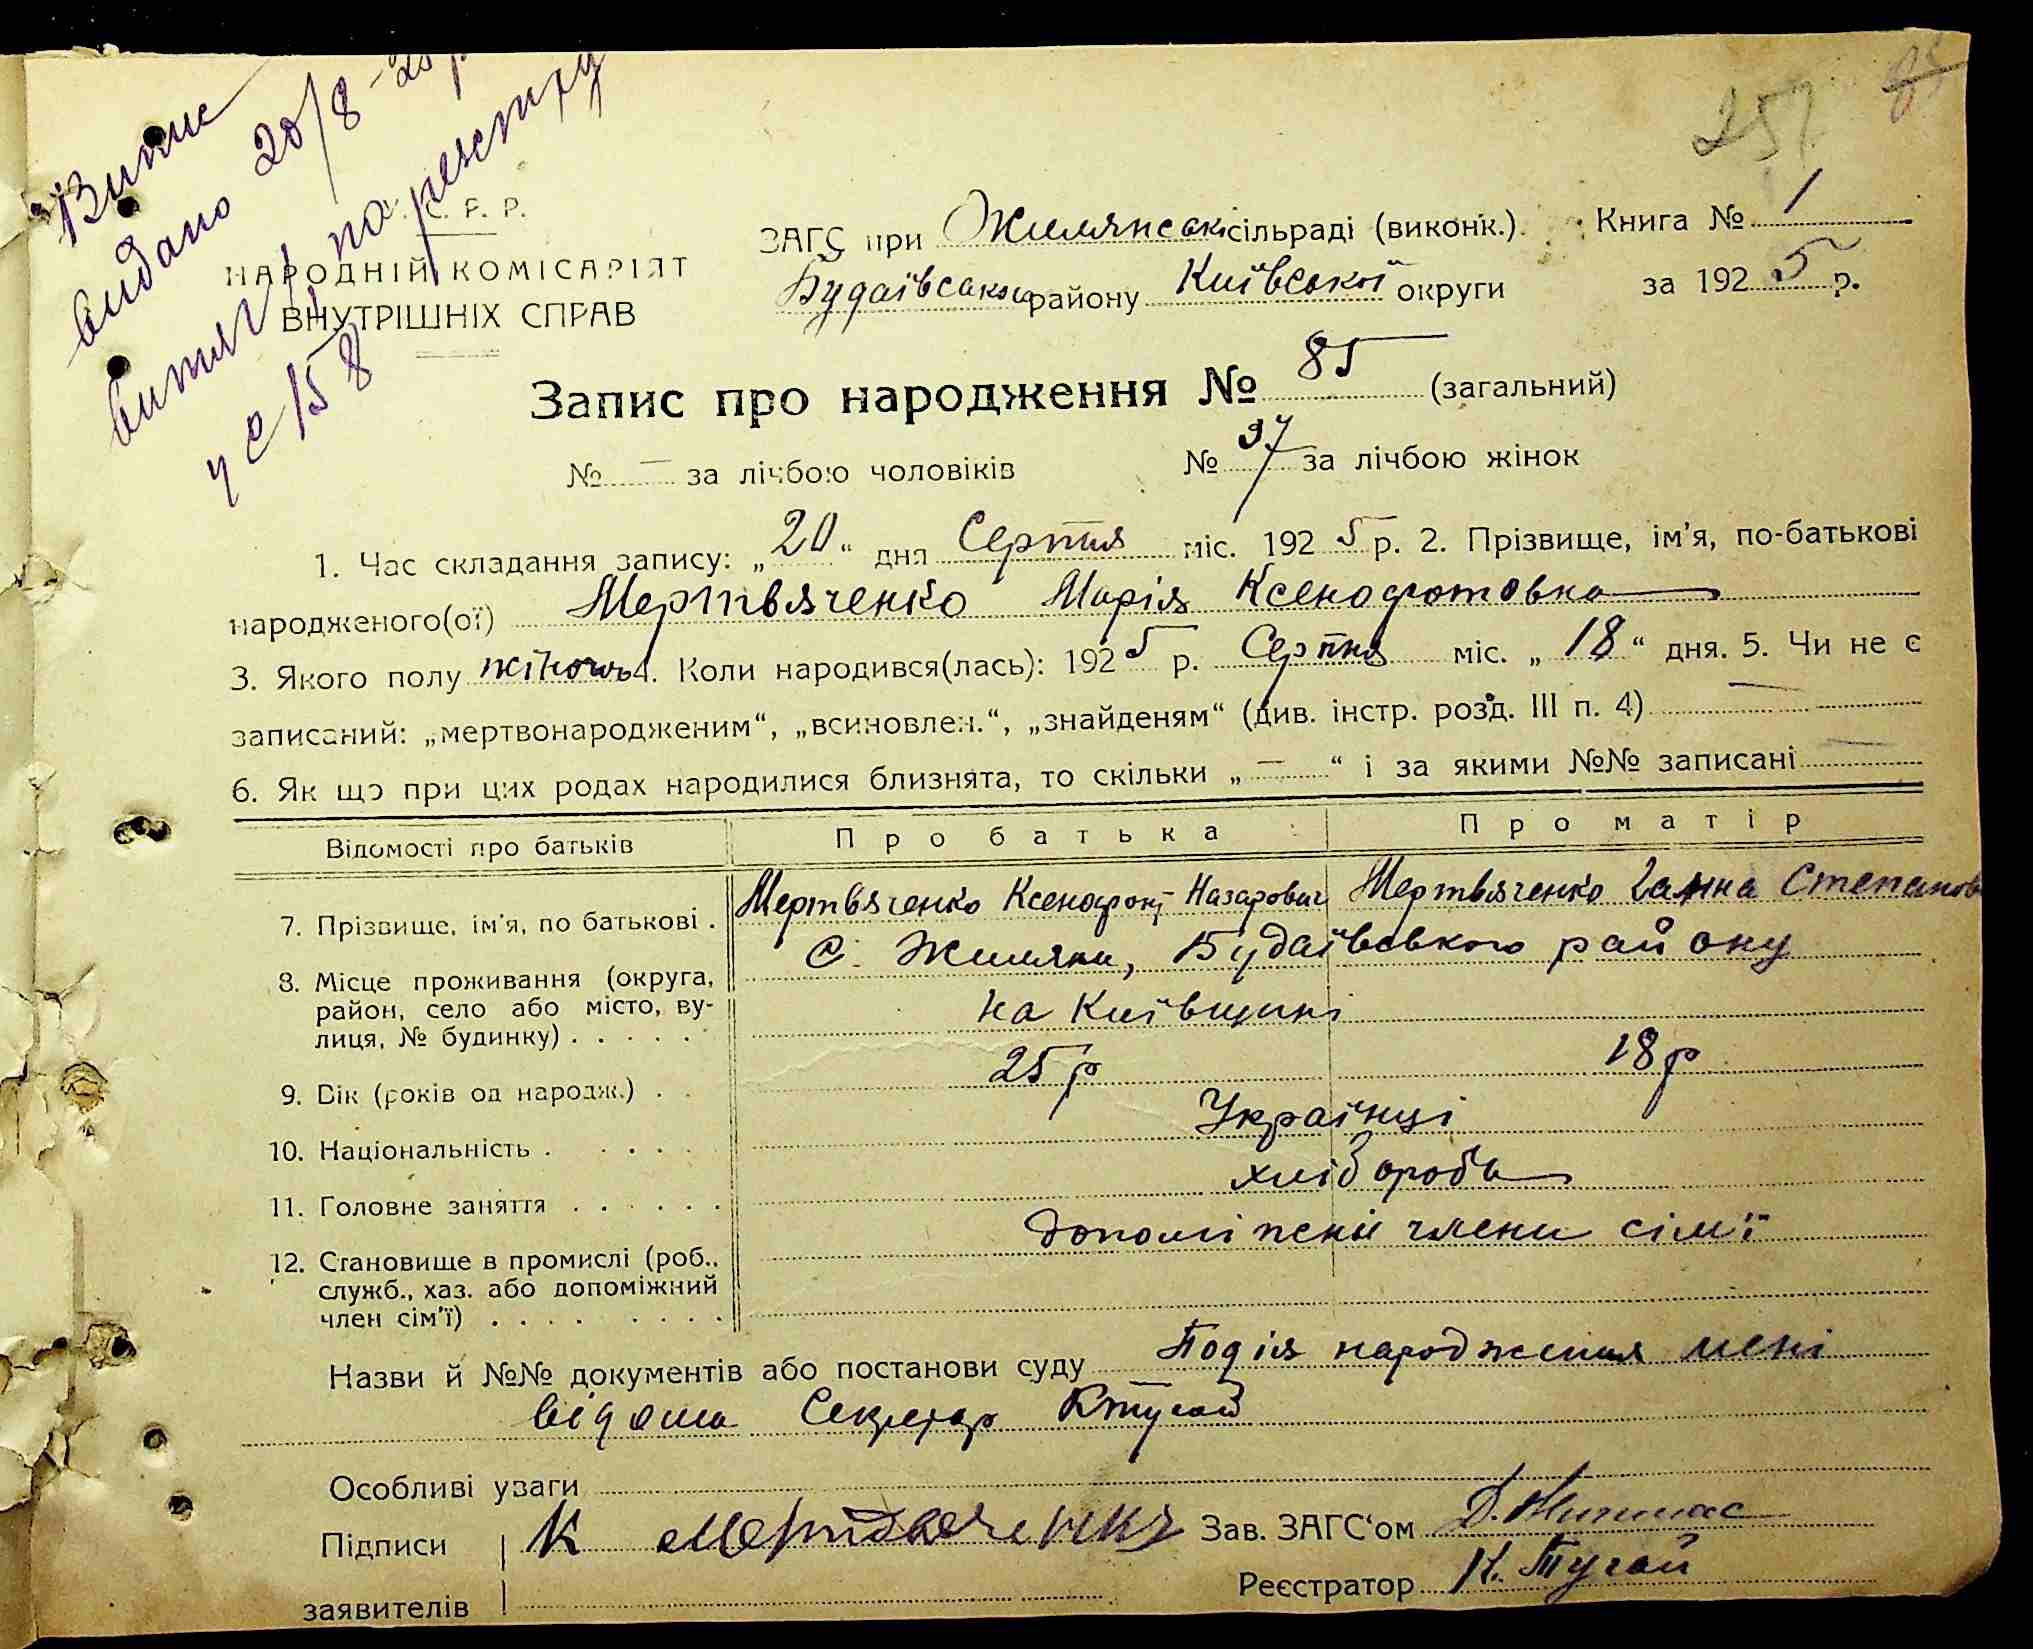 257
Випис
видано 20/8-25р
витяг по реєстру
ч с/58
У. С. Р. Р.
НАРОДНІЙ КОМІСАРІЯТ
ВНУТРІШНІХ СПРАВ
ЗАГС при Жилянській сільраді (виконк.). Книга № 1
Будаївського району Київської округи за 1925 р.
Запис про народження № 85 (загальний)
№ — за лічбою чоловіків № 37 за лічбою жінок
1. Час складання запису: „20“ дня Серпня міс. 1925 р. 2. Прізвище, ім'я, по-батькові
народженого(ої) Мертвяченко Марія Ксенофотовна
3. Якого полу жіночь 4. Коли народився(лась): 1925 р. Серпня міс. „18“ дня. 5. Чи не є
записаний: „мертвонародженим“, „всиновлен.“, „знайденям“ (див. інстр. розд. III п. 4) —
6. Як що при цих родах народилися близнята, то скільки „—“ і за якими №№ записані —
Відомості про батьків Про батька Про матір
7. Прізвище, ім'я, по батькові . Мертвяченко Ксенофонт Назарович Мертвяченко Ганна Степанов
8. Місце проживання (округа, с. Жиляни, Будаївського району
район, село або місто, ву- на Київщині
лиця, № будинку) . . . . .
9. Вік (років од народж.) . . 25р 18р
10. Національність . . . . . Українці
11. Головне заняття . . . . . . хлібороби
12. Становище в промислі (роб., допоміжні члени сім'ї
служб., хаз. або допоміжний
член сім'ї) . . . . . . . .
Назви й №№ документів або постанови суду Подія народження мені
відома Секретар КТугай
Особливі уваги
Підписи К Мертвяченко Зав. ЗАГС'ом
заявителів Реєстратор К. Тугай